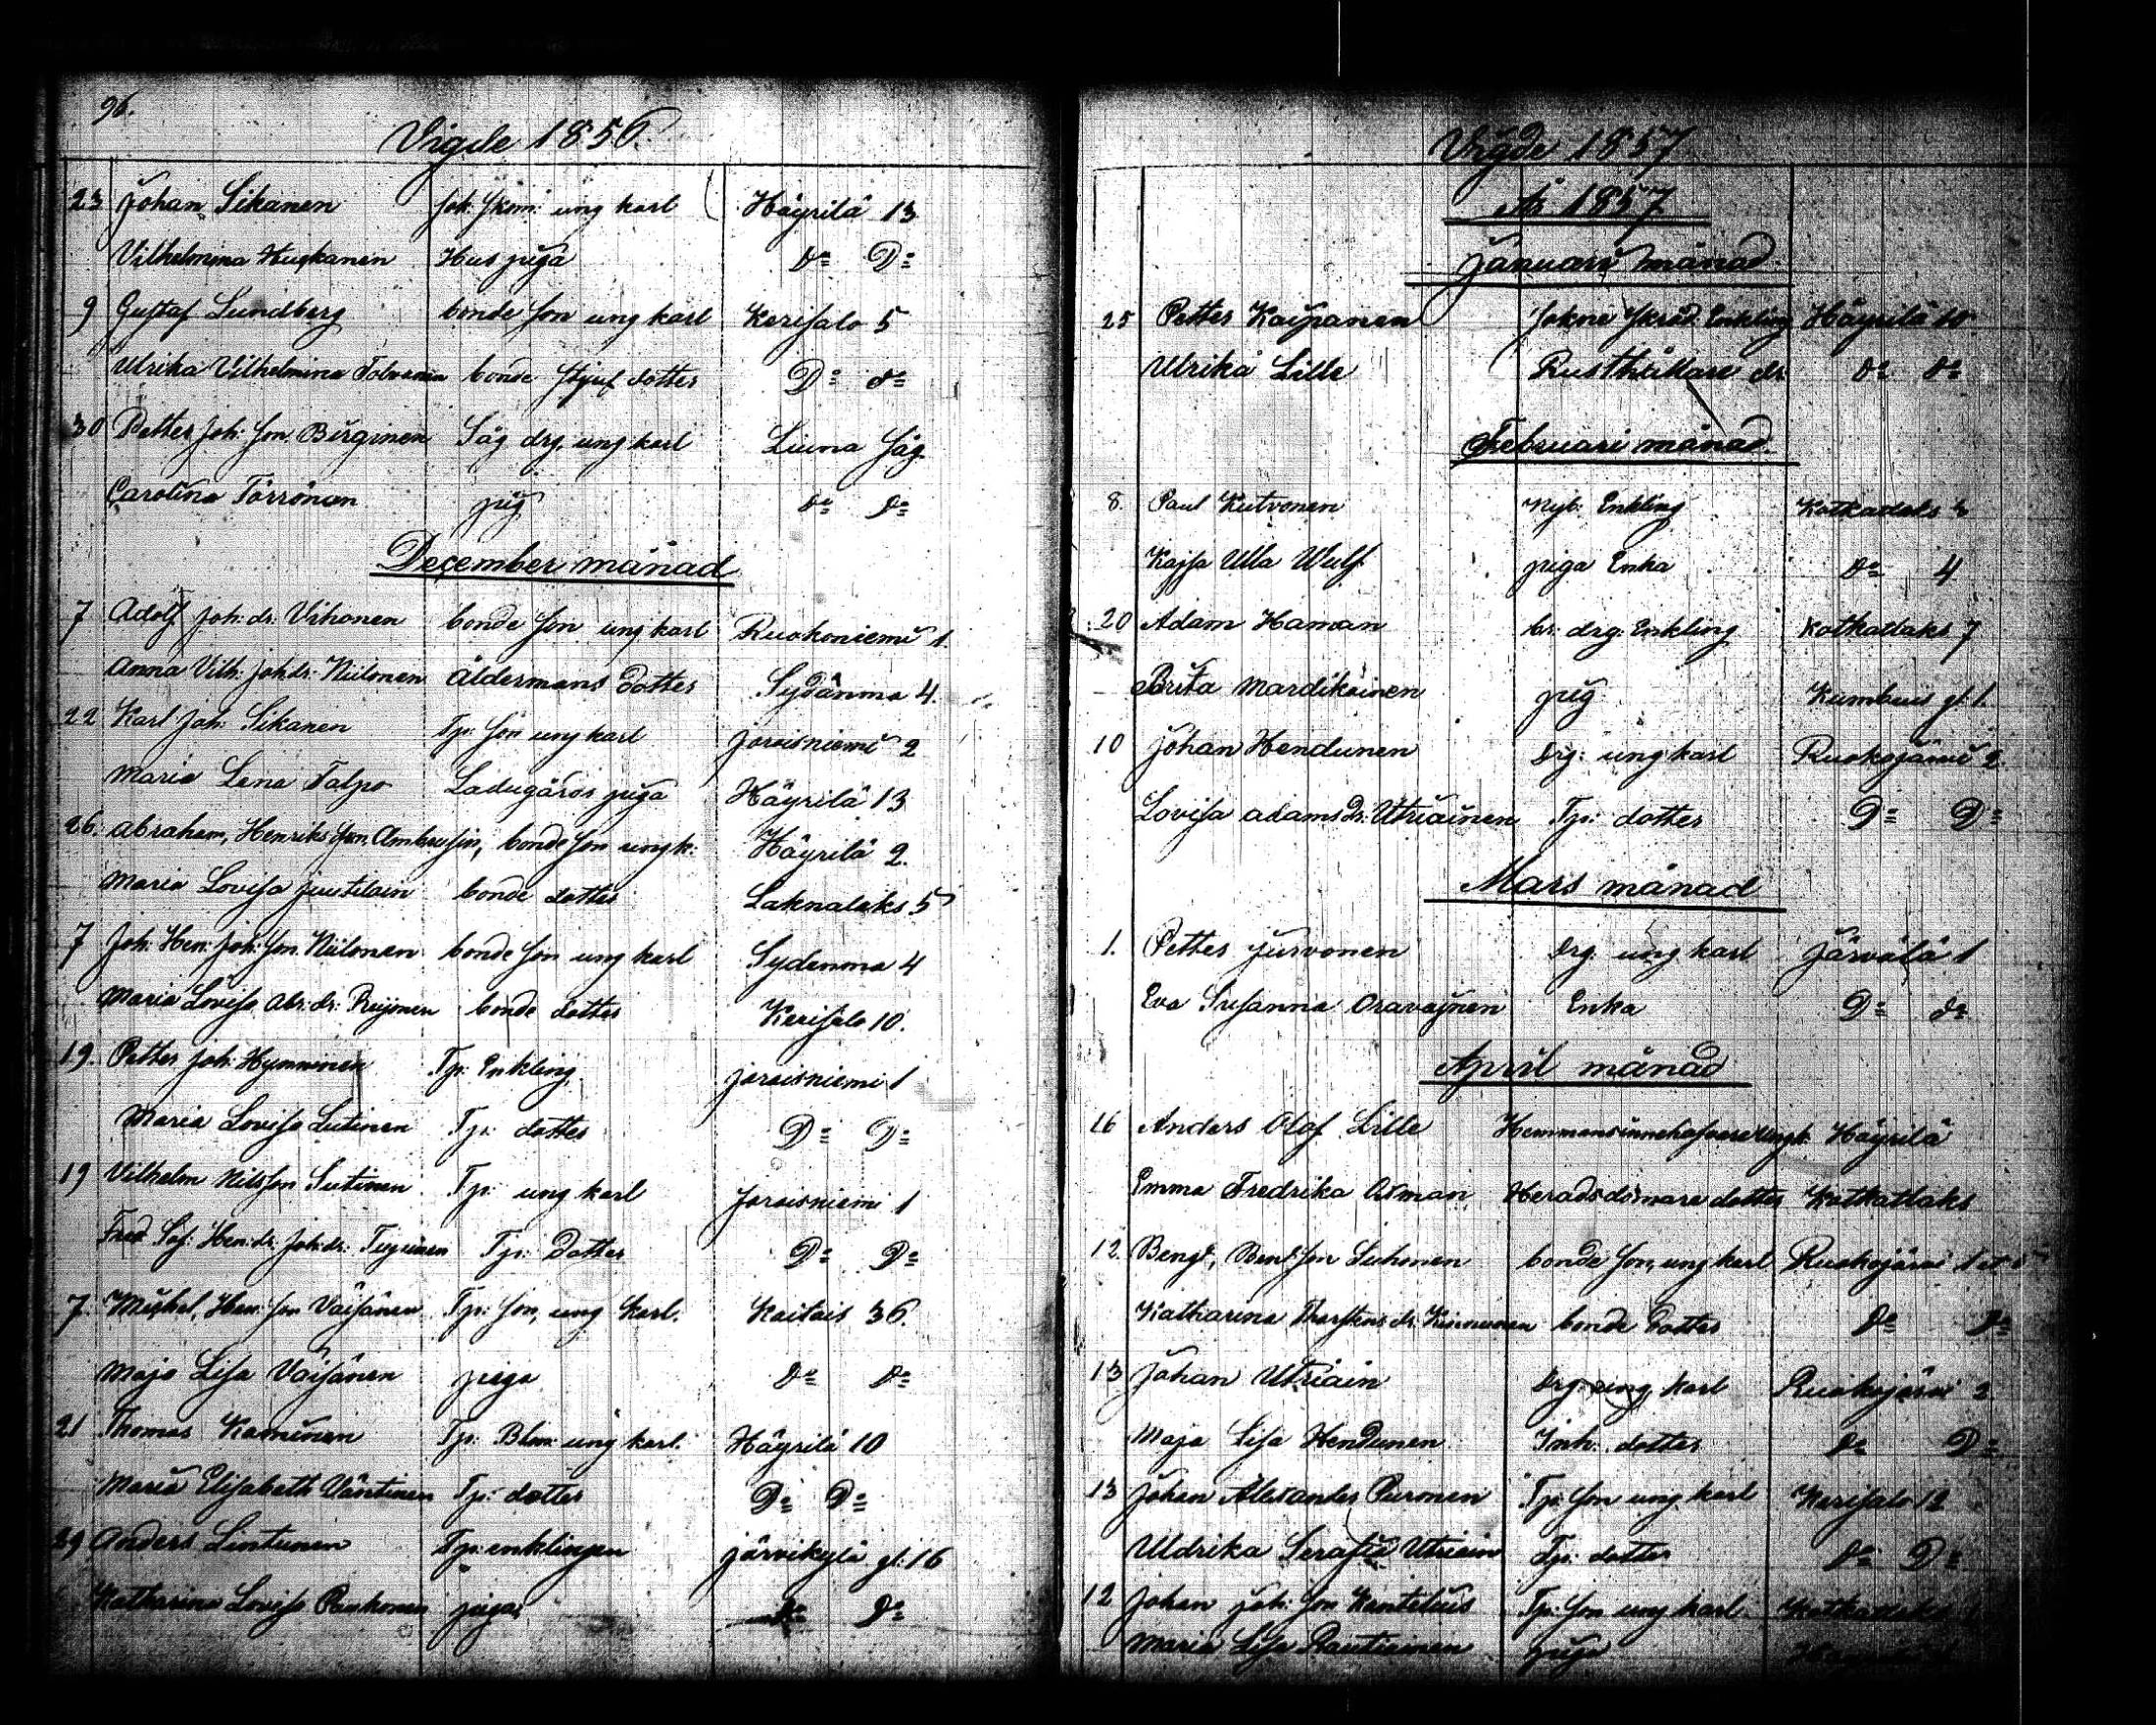 96.
Vigde 1856.
23 Johan Sikanen ung karl Häyrilä 13
Vilhelmina Huskanen Hus piga do Do
9 Gustaf Lundberg bonde son ung karl Kerisalo 5
Ulrika Vilhelmina Tolvanen bonde styuf dotter Do do
30 Petter Joh: son Birginen Såg drg. ung karl Liuna såg
Carolina Törrönen pig do do
December månad
7 Adolf Joh: dr: Vihonen bonde son ung karl Ruokoniemi 1.
Anna Vilh: Joh dr: Niilonen Åldermans dotter Sydänma 4.
22 Karl Joh: Sikanen Tp: son ung karl Joroisniemi 2
Maria Lena Talpo Ladugårds piga Häyrilä 13
26. Abraham, Henriks son bonde son ung k: Häyrilä 2.
Maria Lovisa Juutilain bonde dotter Laknalaks 5
7 Joh: Hen: Joh: son Niilonen bonde son ung karl Sydenma 4
Maria Lovisa Abr: dr: bonde dotter Kerisalo 10.
19. Petter Joh: Hymninen Tp: Enkling Joroisniemi 1
Maria Lovisa Sutinen Tp: dotter Do Do
19 Vilhelm Nilsson Sutinen Tp: ung karl Joroisniemi 1
Fred Sof: Hen: dr Joh: dr: Tp: Dotter Do Do
7. Mickel, Hen: son Väisänen Tp: son, ung karl. Kaitais 36.
Maja Lisa Väisänen piga do do
21 Thomas Kaminen Tp: Blm: ung karl. Häyrilä 10
Maria Elisabeth Väntinen Tp: dotter Do Do
29 Anders Lintunen Tp: enklingen Järvikylä gl: 16
Katharina Lovisa piga do do
Vigde 1857
År 1857
Januari månad
25 Petter Kaipanen Sokne skräd. Enkling Häyrilä 10
Ulrika Lille Rusthållare dr do do
Februari månad.
8. Paul Kutvonen Nyb: Enkling
Kajsa Ulla Wulf piga Enka do 4
20 Adam Haman br: drg: Enkling Kotkatlaks 7
Brita Mardikainen pig Kumbuis gl 1.
10 Johan Hendunen Drg: ung karl Ruokojärvi 2
Lovisa Adams Dr: Utriainen Tp: dotter Do Do
Mars månad
1. Petter Jurvonen Drg: ung karl Järvälä 1
Eva Susanna Oravainen Enka Do do
April månad
16 Anders Olof Lille Hemmansinnehafvare ungk: Häyrilä
Emma Fredrika Aiman Heradsdömare dotter Kotkatlaks
12. Bengt, Bent son Suhonen bonde son, ung karl Ruokojärvi
Katharina Thorstens dr. Kinnunen bonde Dotter do do
13 Johan Utriain Drg: ung karl Ruokojärvi 2
Maja Lisa Hendunen Inh: dotter do Do
13 Johan Alexander Puronen Tp: son ung karl Kerisalo 12
Uldrika Serafia Utriain Tp: dotter do Do
12 Johan Joh: son Kanteluus Tp: son ung karl Kotkatlaks
Maria Lisa Rautiainen piga